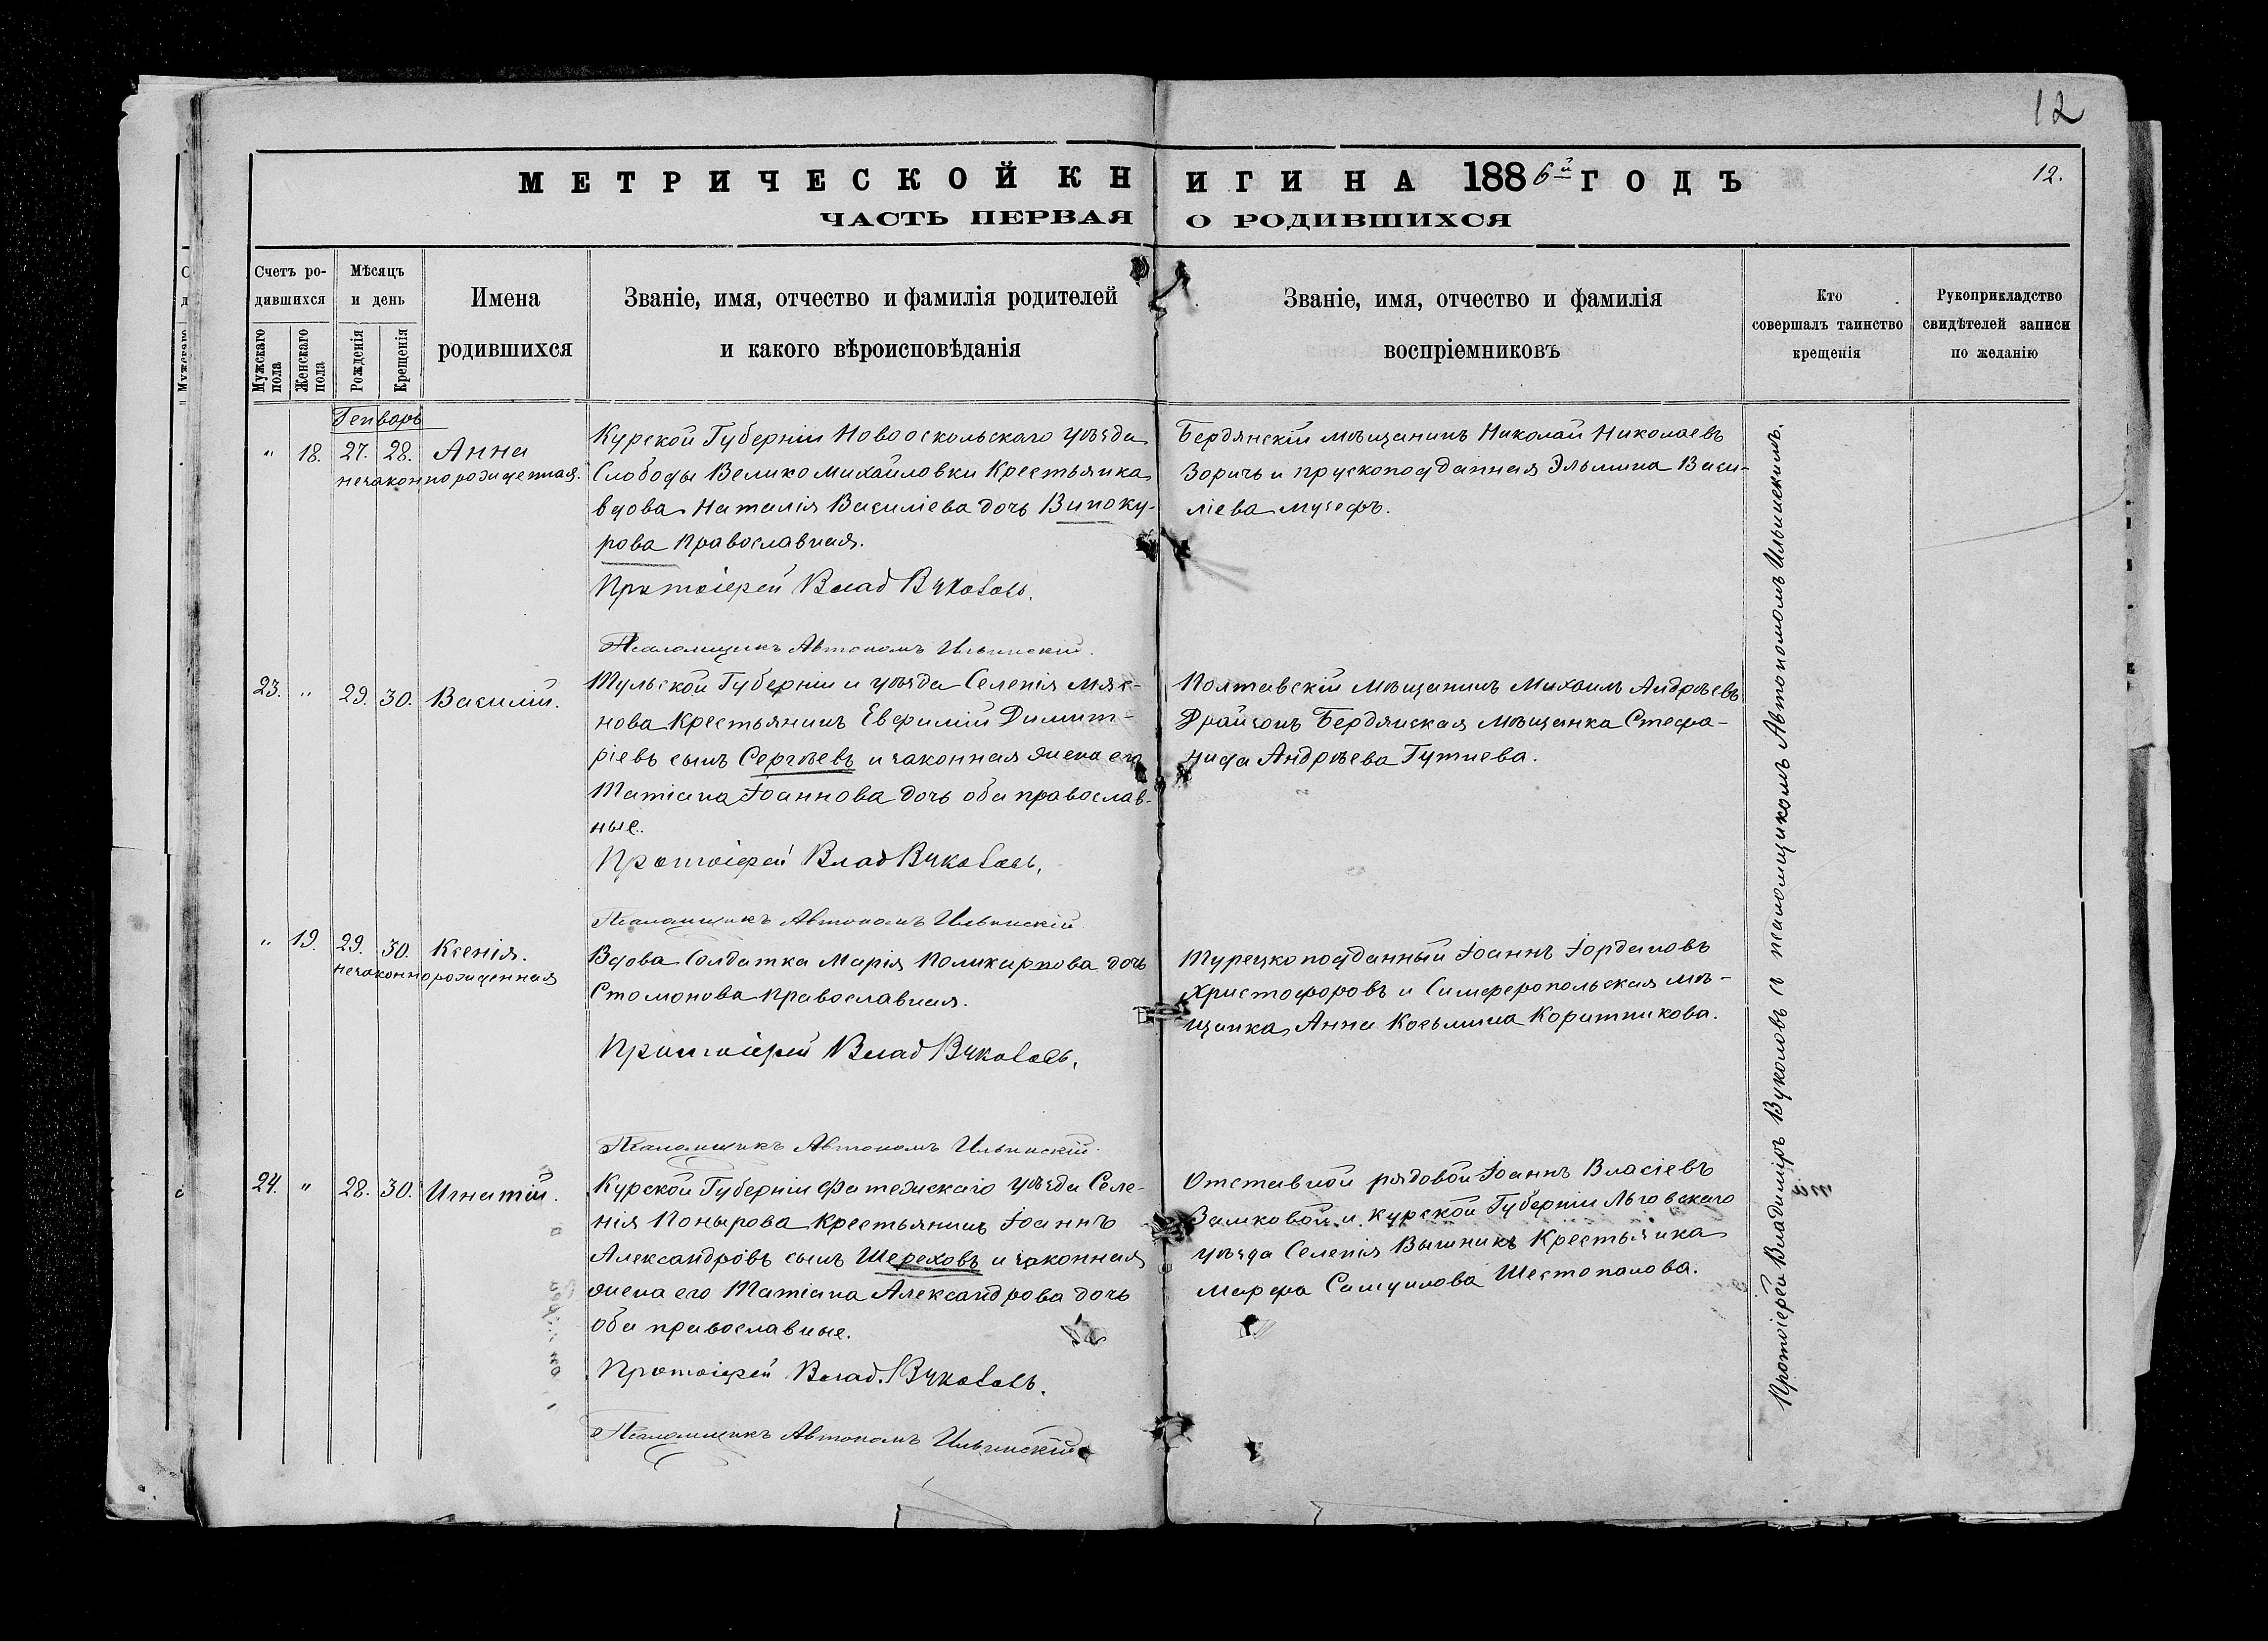 12
МЕТРИЧЕСКОЙ КНИГИ НА 1886й ГОДЪ
12.
ЧАСТЬ ПЕРВАЯ О РОДИВШИХСЯ
Счетъ ро-
дившихся
Мужскаго пола
Женскаго пола
Мѣсяцъ
и день
Рожденія
Крещенія
Имена
родившихся
Званіе, имя, отчество и фамилія родителей
и какого вѣроисповѣданія
Званіе, имя, отчество и фамилія
воспріемниковъ
Кто
совершалъ таинство
крещенія
Рукоприкладство
свидѣтелей записи
по желанію
Генварь
" 18. 27. 28. Анна
незаконнорожденная.
Курской Губерніи Новооскольскаго уѣзда
Слободы Велико Михайловки Крестьянка
вдова Наталія Василіева дочь Виноку-
рова православная.
Протоіерей Влад Вуколовъ.
Псаломщикъ Автономъ Ильинскій.
Бердянскій мѣщанинъ Николай Николаевъ
Зоричъ и прускоподданная Эльмина Васи-
ліева Музефъ.
23. " 29. 30. Василій.
Тульской Губерніи и уѣзда Селенія Мяс-
нова Крестьянинъ Евфимій Димит-
ріевъ сынъ Сергѣевъ и законная жена его
Татіана Іоаннова дочь оба православ-
ные.
Протоіерей Влад Вуколовъ.
Псаломщикъ Автономъ Ильинскій
Полтавскій Мѣщанинъ Михаилъ Андрѣевъ
Драйзонъ Бердянская Мѣщанка Стефа-
нида Андрѣева Гутнева.
" 19. 29. 30. Ксенія.
незаконнорожденная
Вдова Солдатка Марія Поликарпова дочь
Стомонова православная.
Протоіерей Влад Вуколовъ.
Псаломщикъ Автономъ Ильинскій.
Турецкоподданный Іоаннъ Іордановъ
Христофоровъ и Симферопольская мѣ-
щанка Анна Косьмина Коритникова.
24. " 28. 30. Игнатій.
Курской Губерніи Фатежскаго уѣзда Селе-
нія Понырова Крестьянинъ Іоаннъ
Александровъ сынъ Шереховъ и законная
жена его Татіана Александрова дочь
оба православные.
Протоіерей Влад. Вуколовъ.
Псаломщикъ Автономъ Ильинскій
Отставной рядовой Іоаннъ Власіевъ
Замковой и Курской Губерніи Льговскаго
уѣзда Селенія Вышникъ Крестьянка
Марфа Самуилова Шестопалова.
Протоіерей Владиміръ Вуколовъ съ псаломщикомъ Автономомъ Ильинскимъ.